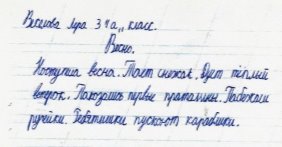 Веснова Лера 3 "а" класс.
Весна.
Наступила весна. Тает снижок. Дует тёплый
ветерок. Показались первые проталины. Побежали
ручейки. Ребетишки пускают карабики.